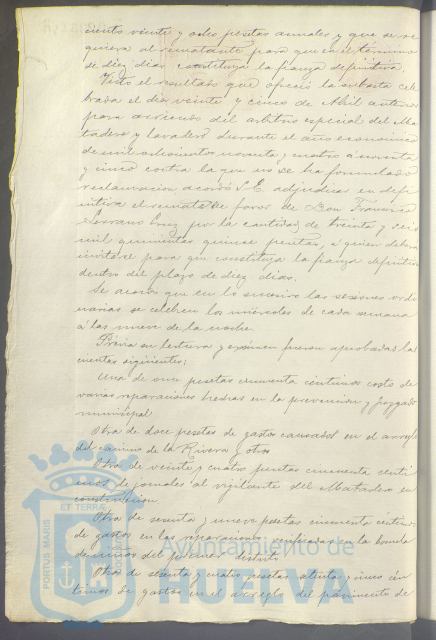 ciento veinte y ocho pesetas anuales y que se re
quiera al rematante para que en el término
de diez días constituya la fianza definitiva.
Visto el resultado que ofreció la subasta cele
brada el día veinte y cinco de Abril anterior
para arriendo del arbitrio especial del Ma
tadero y lavadero durante el año económico
de mil ochocientos noventa y cuatro a noventa
y cinco contra la que no se ha formulado
reclamación acordó S.E. adjudicar en defi
nitiva el remate a favor de Don Francisco
Serrano Cruz por la cantidad de treinta y seis
mil quinientas quince pesetas, a quien deberá
invitarse para que constituya la fianza definitiva
dentro del plazo de diez días.
Se acordó que en lo sucesivo las sesiones ordi
narias se celebren los miércoles de cada semana
á las nueve de la noche.
Prévia su lectura y exámen fueron aprobadas las
cuentas siguientes:
Una de once pesetas cincuenta céntimos costo de
varias reparaciones hechas en la prevención y juzgado
municipal
Otra de doce pesetas de gastos causados en el arreglo
del camino de la Rivera y otros
Otra de veinte y cuatro pesetas cincuenta cénti
mos de jornales al vigilante del Matadero en
construcción
Otra de sesenta y nueve pesetas cincuenta céntimos
de gastos en las reparaciones verificadas en la bomba
de distrito
Otra de sesenta y cuatro pesetas y cinco cén
timos de gastos en el arreglo del pavimento de
PORTUS MARIS
ET TERRAE
Ayuntamiento de
HUELVA